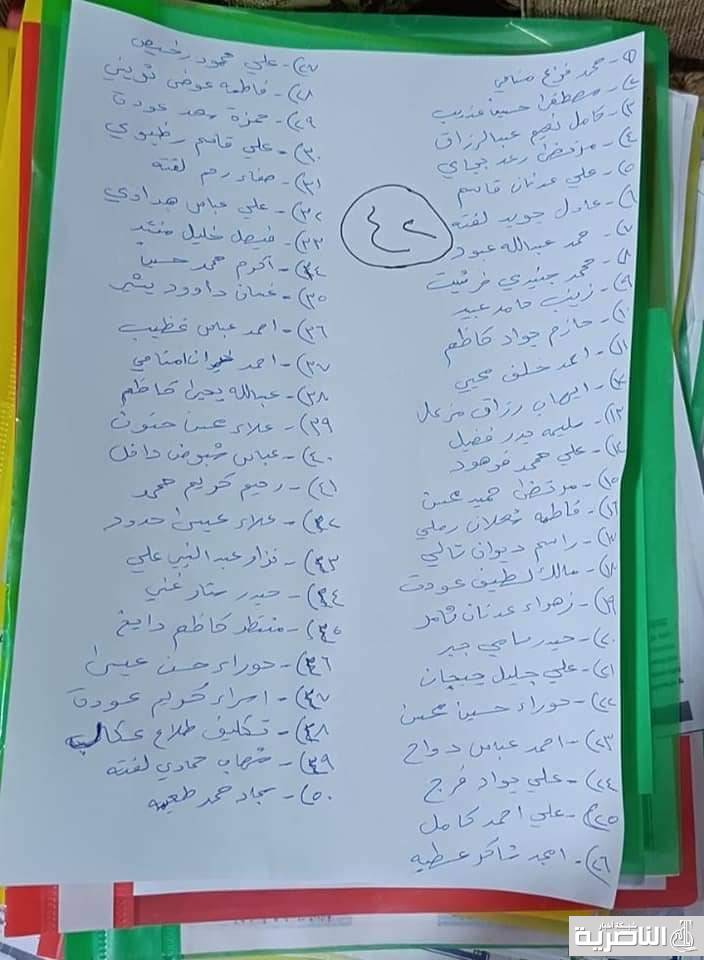 ١- محمد فزع مناحي
٢- مصطفى حسين غريب
٣- كامل نعيم عبدالرزاق
٤- مرتضى رعد
٥- علي عدنان قاسم
٦- عادل جويد لفته
٧- حمد عبدالله عبود
٨- محمد جنيدي
٩- زينب حامد عبيد
١٠- حازم جواد كاظم
١١- احمد خلف محيي
١٢- ايهاب رزاق مزعل
١٣- سليمه بدر فضيل
١٤- علي محمد فرهود
١٥- مرتضى حميد محسن
١٦- فاطمه شعلان رملي
١٧- راسم ديوان تالي
١٨- مالك لطيف عودة
١٩- زهراء عدنان ثامر
٢٠- حيدر سامي جبر
٢١- علي جليل جيجان
٢٢- حوراء حسين محسن
٢٣- احمد عباس دواح
٢٤- علي جواد فرج
٢٥- علي احمد كامل
٢٦- امجد شاكر عطيه
٤٢
٢٧- علي محمود رخيص
٢٨- فاطمه عوض ثويني
٢٩- حمزة سعد عودة
٣٠- علي قاسم
٣١- صفاء رحم لفته
٣٢- علي عباس هدادي
٣٣- فيصل خليل منشد
٣٤- اكرم محمد حسين
٣٥- غسان داوود يشر
٣٦- احمد عباس غظيب
٣٧- احمد
٣٨- عبدالله يحيى كاظم
٣٩- علاء محسن حنون
٤٠- عباس شبوض داخل
٤١- رحيم كريم محمد
٤٢- علاء عيسى حدود
٤٣- نزار عبدالنبي علي
٤٤- حيدر ستار غني
٤٥- منتظر كاظم دايخ
٤٦- حوراء حسن عيسى
٤٧- اسراء كريم عودة
٤٨- تكليف طلاع عكاب
٤٩- شهاب حمادي لفته
٥٠- سجاد محمد طعيمه
شبكة اخبار
الناصرية